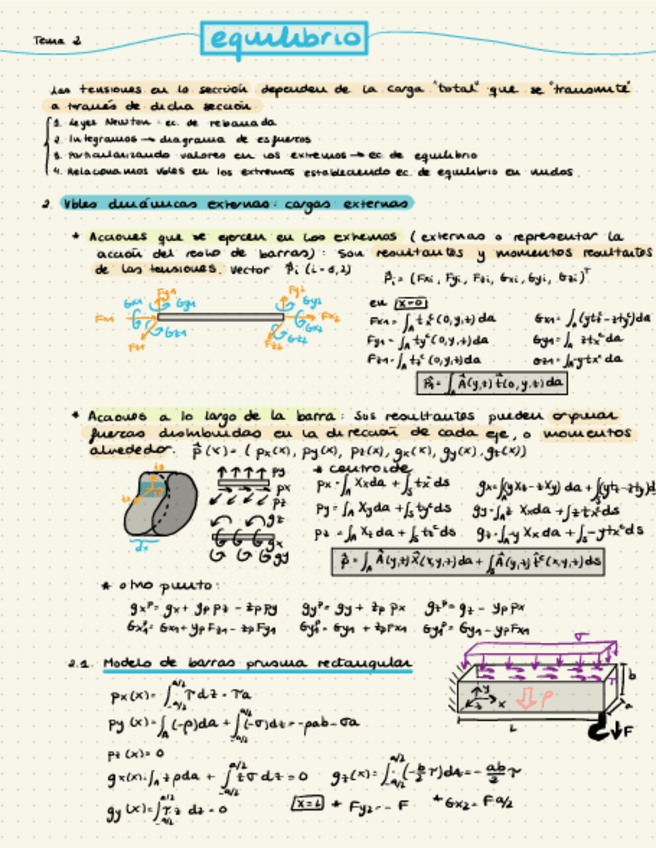 Tema 2
equilibrio
Las tensiones en la sección dependen de la carga "total" que se "transmite"
a través de dicha sección
1. Leyes Newton - ec. de rebanada
2. Integramos → diagrama de esfuerzos
3. Particularizando valores en los extremos → ec. de equilibrio
4. Relacionamos vbles en los extremos estableciendo ec. de equilibrio en nudos.
2. Vbles dinámicas externas: cargas externas
* Acciones que se ejercen en los extremos (externas o representar la
acción del resto de barras): Son resultantes y momentos resultantes
de las tensiones. Vector P⃗i (i=1,2)
P⃗i = (Fxi, Fyi, Fzi, Gxi, Gyi, Gzi)ᵀ
Fy1 Gx1 Gy1 Fx1 Gz1 Fz1
Fy2 Gy2 Fx2 Gx2 Gz2 Fz2
en x=0
Fx1 = ∫A tx^c(0,y,z)da
Fy1 = ∫A ty^c(0,y,z)da
Fz1 = ∫A tz^c(0,y,z)da
P⃗1 = ∫A A⃗(y,z) t⃗(0,y,z)da
* Acciones a lo largo de la barra: Sus resultantes pueden originar
fuerzas distribuidas en la dirección de cada eje, o momentos
alrededor. p⃗(x) = (px(x), py(x), pz(x), gx(x), gy(x), gz(x))
* centroide
py
px
pz
gz
gx
gy
dx
px = ∫A Xx da + ∫S tx^c ds
py = ∫A Xy da + ∫S ty^c ds gy = ∫A z Xx da + ∫S z tx^c ds
pz = ∫A Xz da + ∫S tz^c ds gz = ∫A -y Xx da + ∫S -y tx^c ds
p⃗ = ∫A A⃗(y,z) X⃗(x,y,z)da + ∫S A⃗(y,z) t⃗^c(x,y,z)ds
* otro punto:
gx^p = gx + yp pz - zp py gy^p = gy + zp px gz^p = gz - yp px
Gx1^p = Gx1 + yp Fz1 - zp Fy1 Gy1^p = Gy1 + zp Fx1 Gy1^p = Gy1 - yp Fx1
2.1. Modelo de barras prisma rectangular
px(x) = ∫_{-a/2}^{a/2} τ dz = τa
py(x) = ∫A (-ρ)da + ∫_{-a/2}^{a/2} (-σ)dz = -ρab - σa
pz(x) = 0
gx(x) = ∫A zρda + ∫_{-a/2}^{a/2} zσ dz = 0 gz(x) = ∫_{-a/2}^{a/2} (-b/2 τ)dz = - ab/2 τ
gy(x) = ∫_{-a/2}^{a/2} τz dz = 0 x=L * Fy2 = - F * Gx2 = F a/2
σ
τ
b
a
y
x
z
ρ
L
F